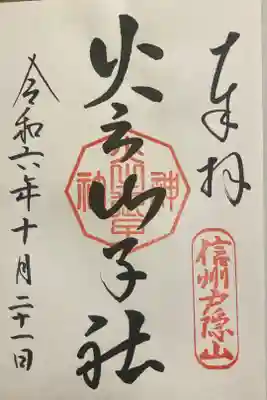 奉拝
信州戸隠山
火之御子社
神
社
令和六年十月二十一日